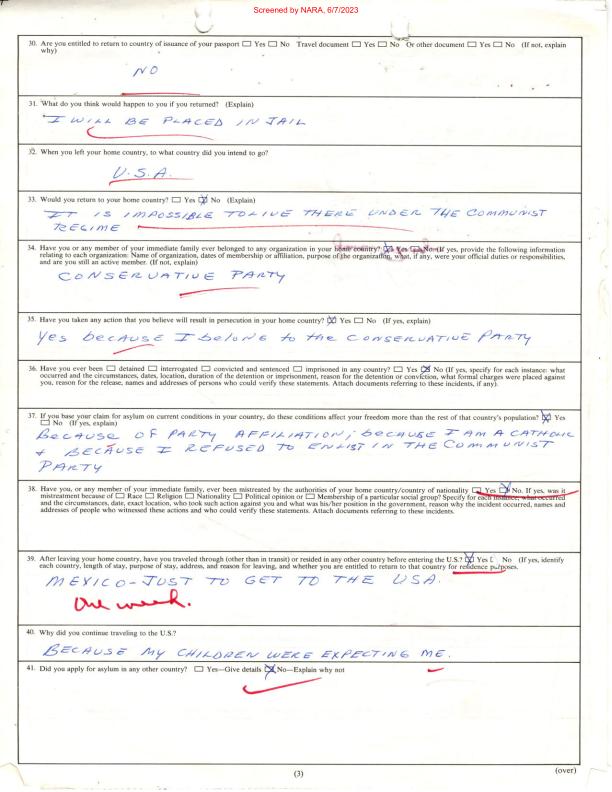 Screened by NARA, 6/7/2023
30. Are you entitled to return to country of issuance of your passport ☐ Yes ☐ No Travel document ☐ Yes ☐ No Or other document ☐ Yes ☐ No (If not, explain
why)
NO
31. What do you think would happen to you if you returned? (Explain)
I WILL BE PLACED IN JAIL
32. When you left your home country, to what country did you intend to go?
U.S.A.
33. Would you return to your home country? ☐ Yes ☒ No (Explain)
IT IS IMPOSSIBLE TO LIVE THERE UNDER THE COMMUNIST
REGIME
34. Have you or any member of your immediate family ever belonged to any organization in your home country? ☒ Yes ☐ No (If yes, provide the following information
relating to each organization: Name of organization, dates of membership or affiliation, purpose of the organization, what, if any, were your official duties or responsibilities,
and are you still an active member. (If not, explain)
CONSERVATIVE PARTY
35. Have you taken any action that you believe will result in persecution in your home country? ☒ Yes ☐ No (If yes, explain)
Yes because I belong to the CONSERVATIVE PARTY
36. Have you ever been ☐ detained ☐ interrogated ☐ convicted and sentenced ☐ imprisoned in any country? ☐ Yes ☒ No (If yes, specify for each instance: what
occurred and the circumstances, dates, location, duration of the detention or imprisonment, reason for the detention or conviction, what formal charges were placed against
you, reason for the release, names and addresses of persons who could verify these statements. Attach documents referring to these incidents, if any).
37. If you base your claim for asylum on current conditions in your country, do these conditions affect your freedom more than the rest of that country's population? ☒ Yes
☐ No (If yes, explain)
BECAUSE OF PARTY AFFILIATION; because I AM A CATHOLIC
+ BECAUSE I REFUSED TO ENLIST IN THE COMMUNIST
PARTY
38. Have you, or any member of your immediate family, ever been mistreated by the authorities of your home country/country of nationality ☐ Yes ☒ No. If yes, was it
mistreatment because of ☐ Race ☐ Religion ☐ Nationality ☐ Political opinion or ☐ Membership of a particular social group? Specify for each instance; what occurred
and the circumstances, date, exact location, who took such action against you and what was his/her position in the government, reason why the incident occurred, names and
addresses of people who witnessed these actions and who could verify these statements. Attach documents referring to these incidents.
39. After leaving your home country, have you traveled through (other than in transit) or resided in any other country before entering the U.S.? ☒ Yes ☐ No (If yes, identify
each country, length of stay, purpose of stay, address, and reason for leaving, and whether you are entitled to return to that country for residence purposes.
MEXICO - JUST TO GET TO THE USA.
one week.
40. Why did you continue traveling to the U.S.?
BECAUSE MY CHILDREN WERE EXPECTING ME.
41. Did you apply for asylum in any other country? ☐ Yes—Give details ☒ No—Explain why not
(3)
(over)